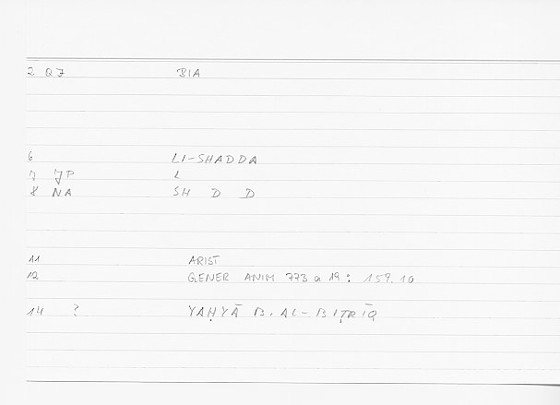 2 QJ BIA
6 LI-SHADDA
7 JP L
8 NA SH D D
11 ARIST
12 GENER ANIM 773 a 19: 159.10
14 ? YAḤYĀ B. AL-BIṬRĪQ